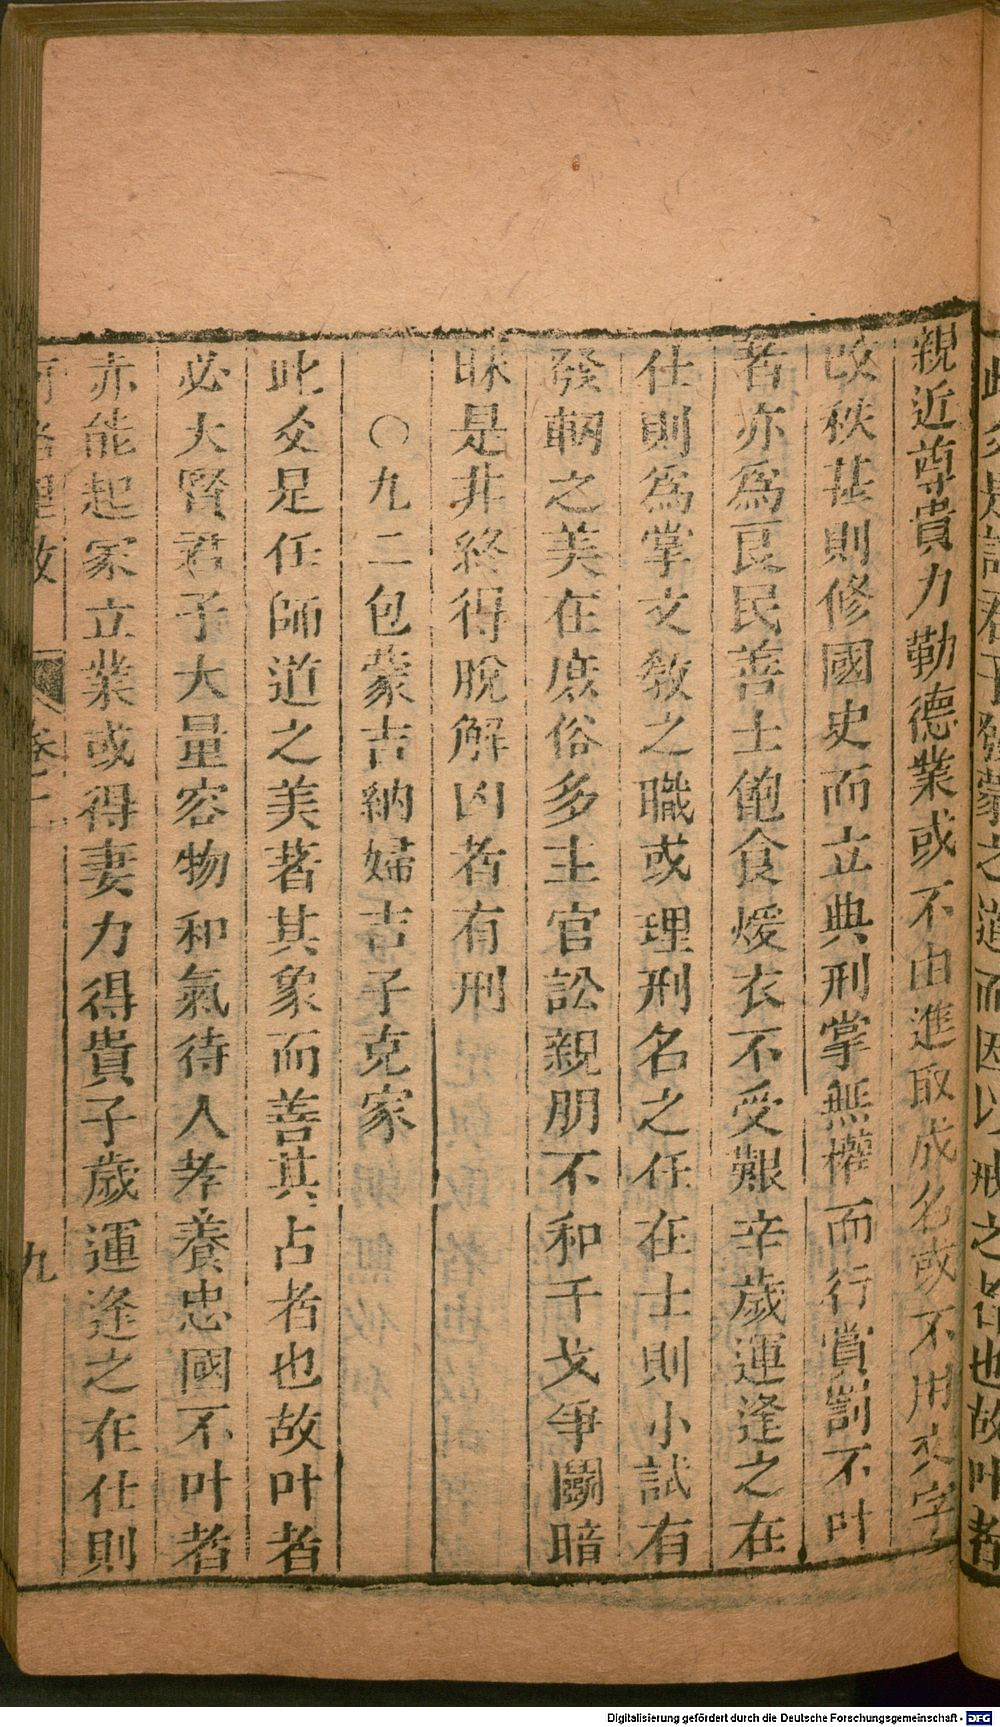 此爻是訓君子發蒙之道而因以戒之者也故叶者
親近尊貴力勒德業或不由進取成名或不用文字
改秩甚則修國史而立典刑掌無權而行賞罰不叶
者亦為良民善士飽食煖衣不受艱辛歲運逢之在
仕則為掌文教之職或理刑名之任在士則小試有
發軔之美在庶俗多主官訟親朋不和干戈爭鬬暗
昧是非終得脫解凶者有刑
○九二包蒙吉納婦吉子克家
此爻是任師道之美著其象而善其占者也故叶者
必大賢君子大量容物和氣待人孝養忠國不叶者
亦能起家立業或得妻力得貴子歲運逢之在仕則
河洛理數 卷十二 九
Digitalisierung gefördert durch die Deutsche Forschungsgemeinschaft - DFG